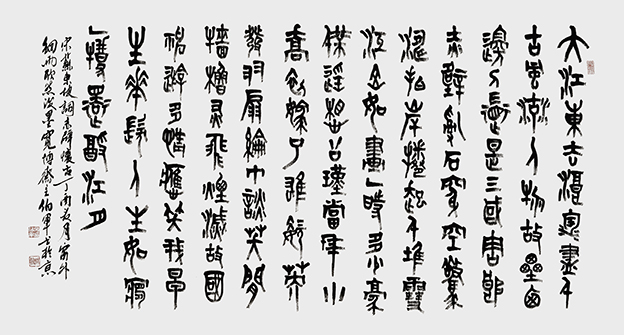 大江東去浪淘盡千
古風流人物故壘西
邊人道是三國周郎
赤壁亂石穿空驚
濤拍岸捲起千堆雪
江山如畫一時多少豪
傑遙想公瑾當年小
喬初嫁了雄姿英
發羽扇綸巾談笑間
檣櫓灰飛煙滅故國
神遊多情應笑我早
生華髮人生如夢
一樽還酹江月
宋蘇東坡詞赤壁懷古丁酉夏月窗外
細雨欣然潑墨寬博齋主伯軍書於京